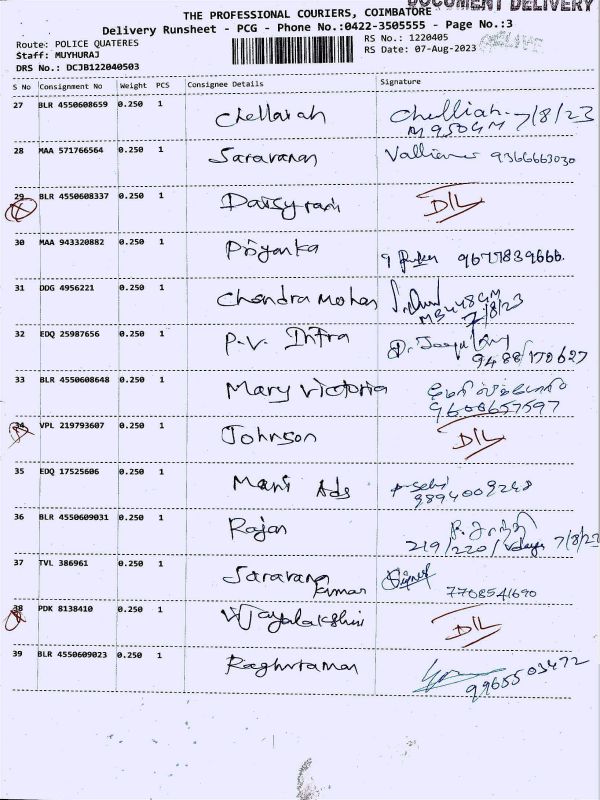 DOCUMENT DELIVERY
THE PROFESSIONAL COURIERS, COIMBATORE
Delivery Runsheet - PCG - Phone No.:0422-3505555 - Page No.:3
Route: POLICE QUATERES
RS No.: 1220405
Staff: MUYHURAJ
RS Date: 07-Aug-2023
DRS No.: DCJB122040503
S No Consignment No Weight PCS Consignee Details Signature
27 BLR 4550608659 0.250 1 Chellaiah Chelliah. 7/8/23
28 MAA 571766564 0.250 1 Saravanan 9366663030
29 BLR 4550608337 0.250 1 Daisyrani D/L
30 MAA 943320882 0.250 1 Priyanka 9677839666.
31 DDG 4956221 0.250 1 Chandra Mohan
7/8/23
32 EDQ 25987656 0.250 1 P.V. Infra
9488170627
33 BLR 4550608648 0.250 1 Mary Victoria
9600657597
34 VPL 219793607 0.250 1 Johnson D/L
35 EDQ 17525606 0.250 1 Mani Ads
9894009248
36 BLR 4550609031 0.250 1 Rajan
219/220/ 7/8/23
37 TVL 386961 0.250 1 Saravana
kumar 7708541690
38 PDK 8138410 0.250 1 Vijayalakshmi D/L
39 BLR 4550609023 0.250 1 Raghuraman
9965503472